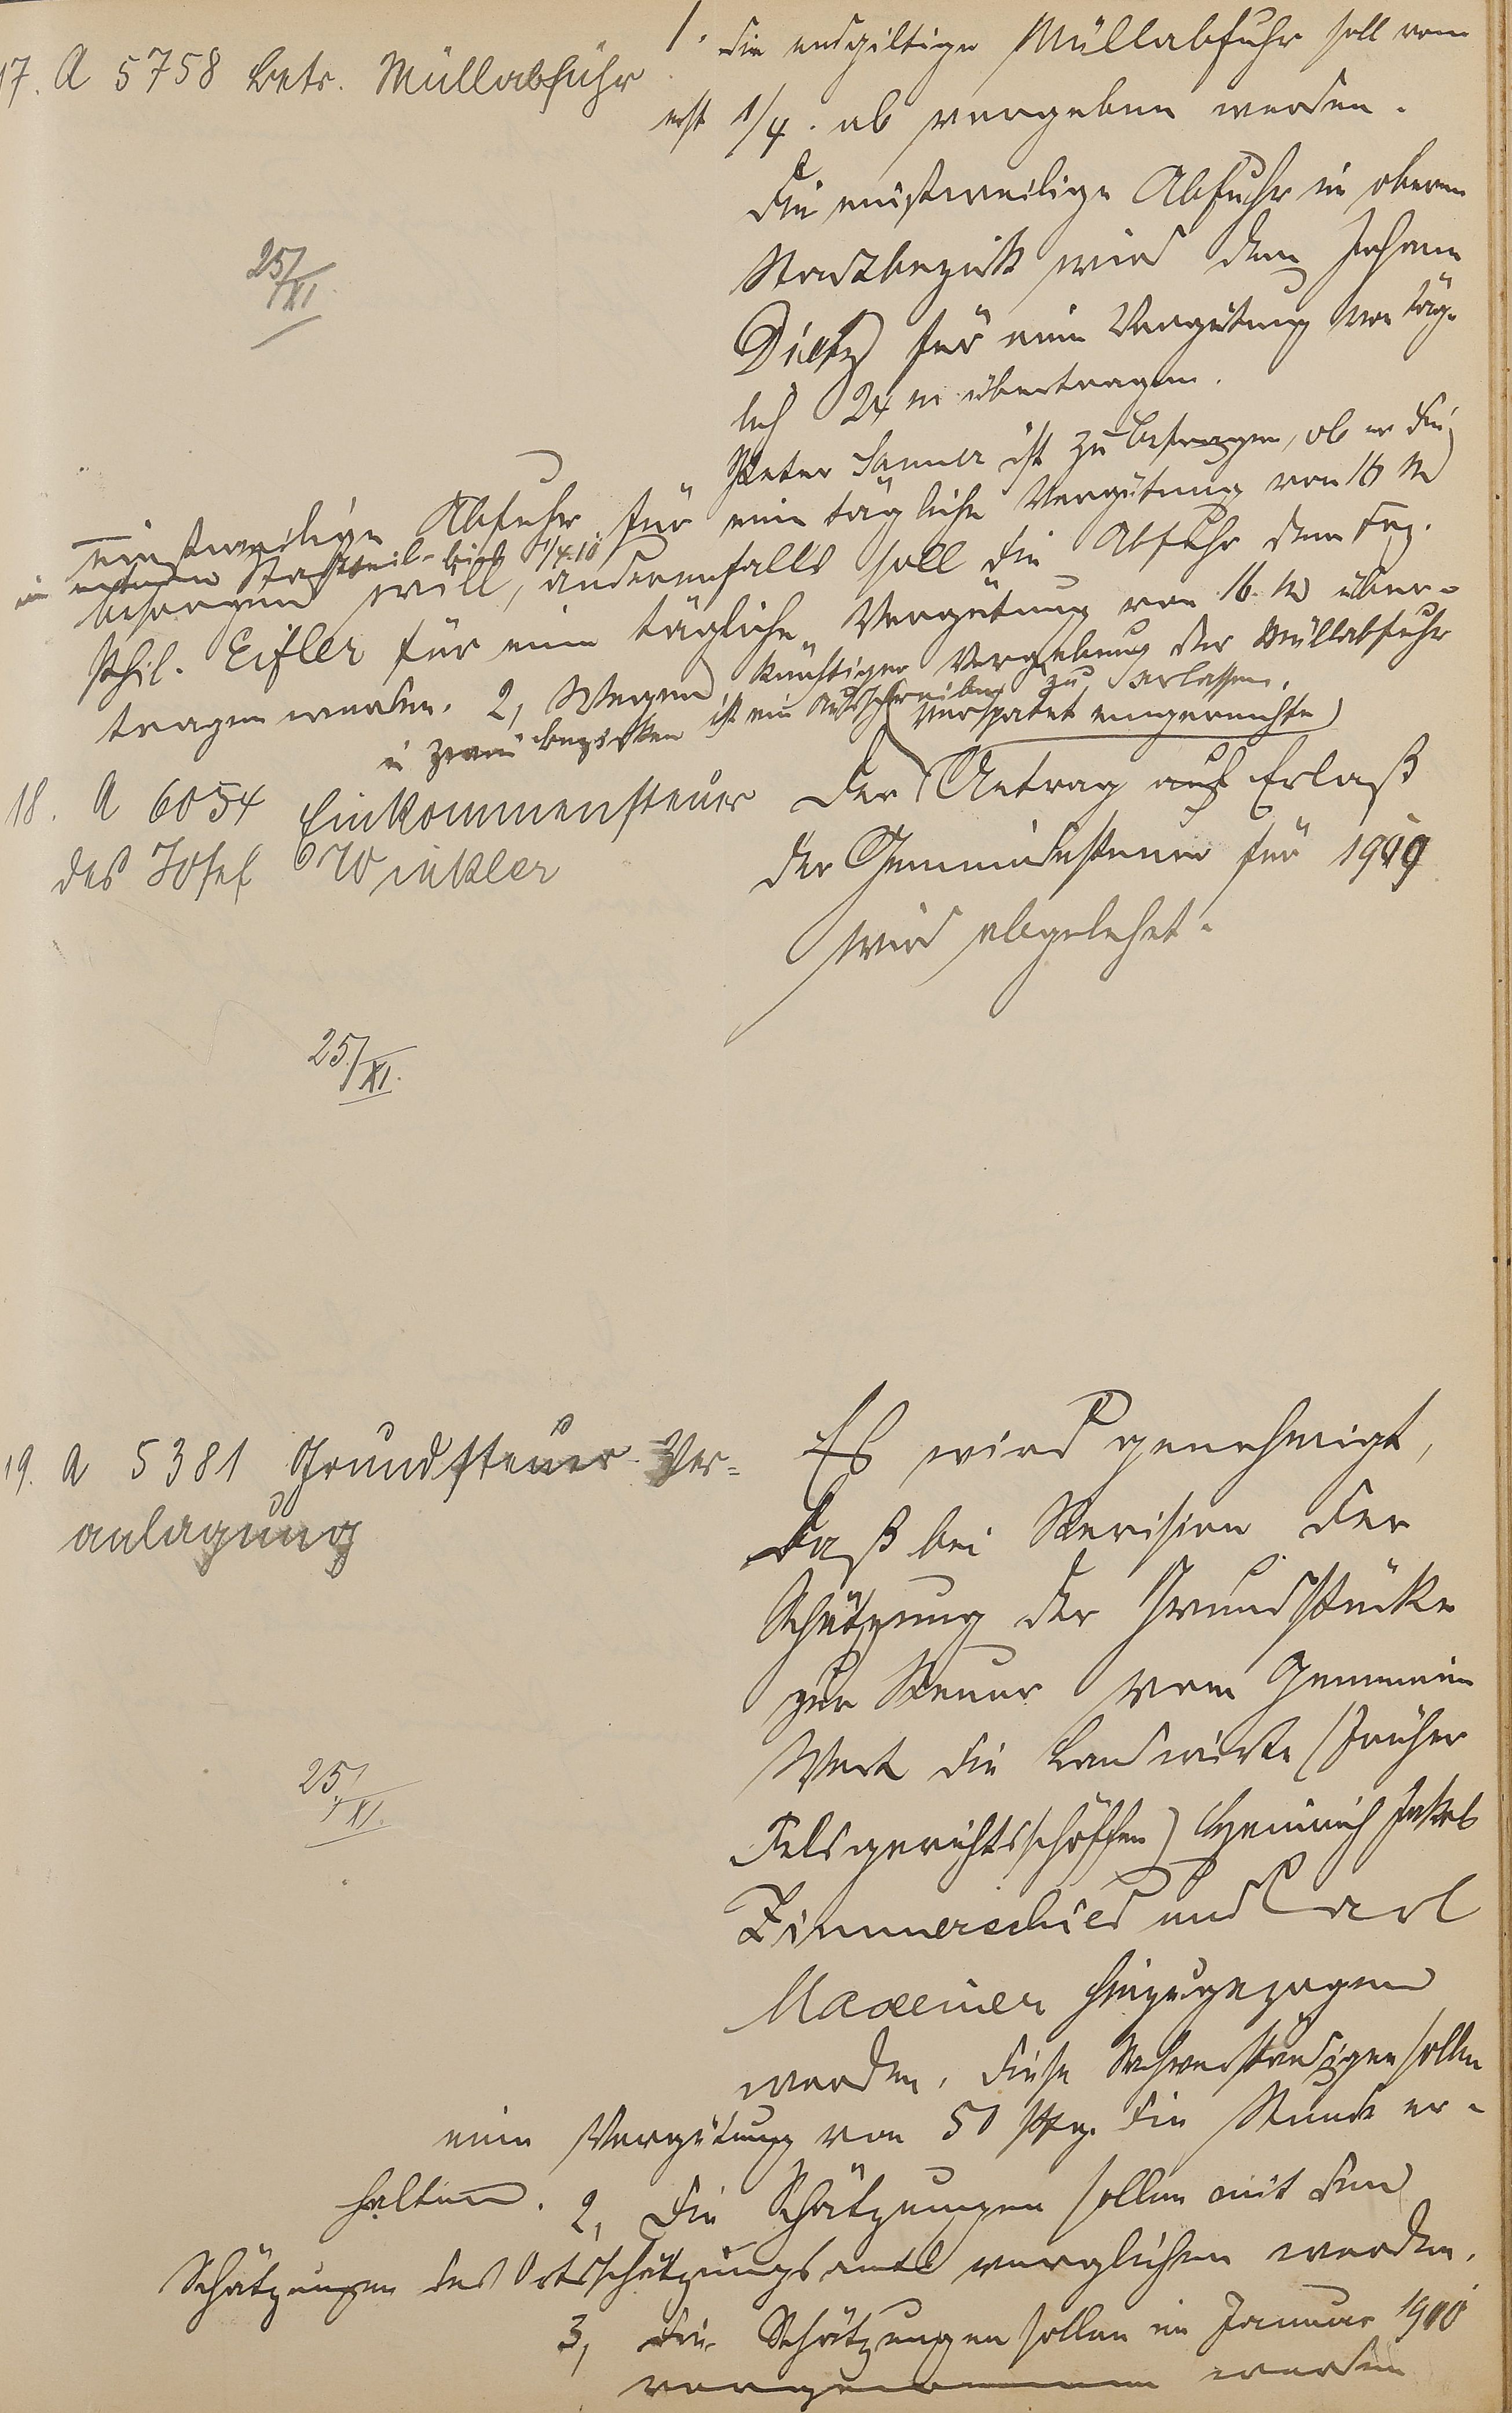 17. A 5758 betr. Müllabfuhr
25/XI.
1. Die endgiltige Müllabfuhr soll vom
erst 1/4. ab vergeben werden.
Die einstweilige Abfuhr im oberen
Stadtbezirk wird dem Johann
Dietz für eine Vergütung von täg-
lich 24 M übertragen.
Peter Sanner ist zu befragen, ob er die
einstweilige Abfuhr für eine tägliche Vergütung von 16 M
im unteren Stadtteil - bis 1/4.10
besorgen will, anderenfalls soll die Abfuhr dem
Phil. Eifler für eine tägliche Vergütung von 16 M über-
tragen werden. 2, Wegen künftiger Vergebung der Müllabfuhr
in zwei Bezirken ist ein Ausschreiben zu erlassen.
18. A 6054 Einkommensteuer
des Josef Winkler
25/XI.
verspätet eingereichte
Der Antrag auf Erlaß
der Gemeindesteuer für 1909
wird abgelehnt.
19. A 5381 Grundsteuer-Ver-
anlagung
25/XI.
Es wird genehmigt,
daß bei Revision der
Schätzung der Grundstücke
zur Steuer vom gemeinen
Wert die Landwirte (früher
Feldgerichtsschöffen) Heinrich Jakob
Zimmerschied und Carl
Maxeiner hinzugezogen
werden. Diese Sachverständigen sollen
eine Vergütung von 50 Pfg. die Stunde er-
halten. 2, Die Schätzungen sollen mit den
Schätzungen des Ortsschätzungsamts verglichen werden.
3, Die Schätzungen sollen im Januar 1910
vorgenommen werden